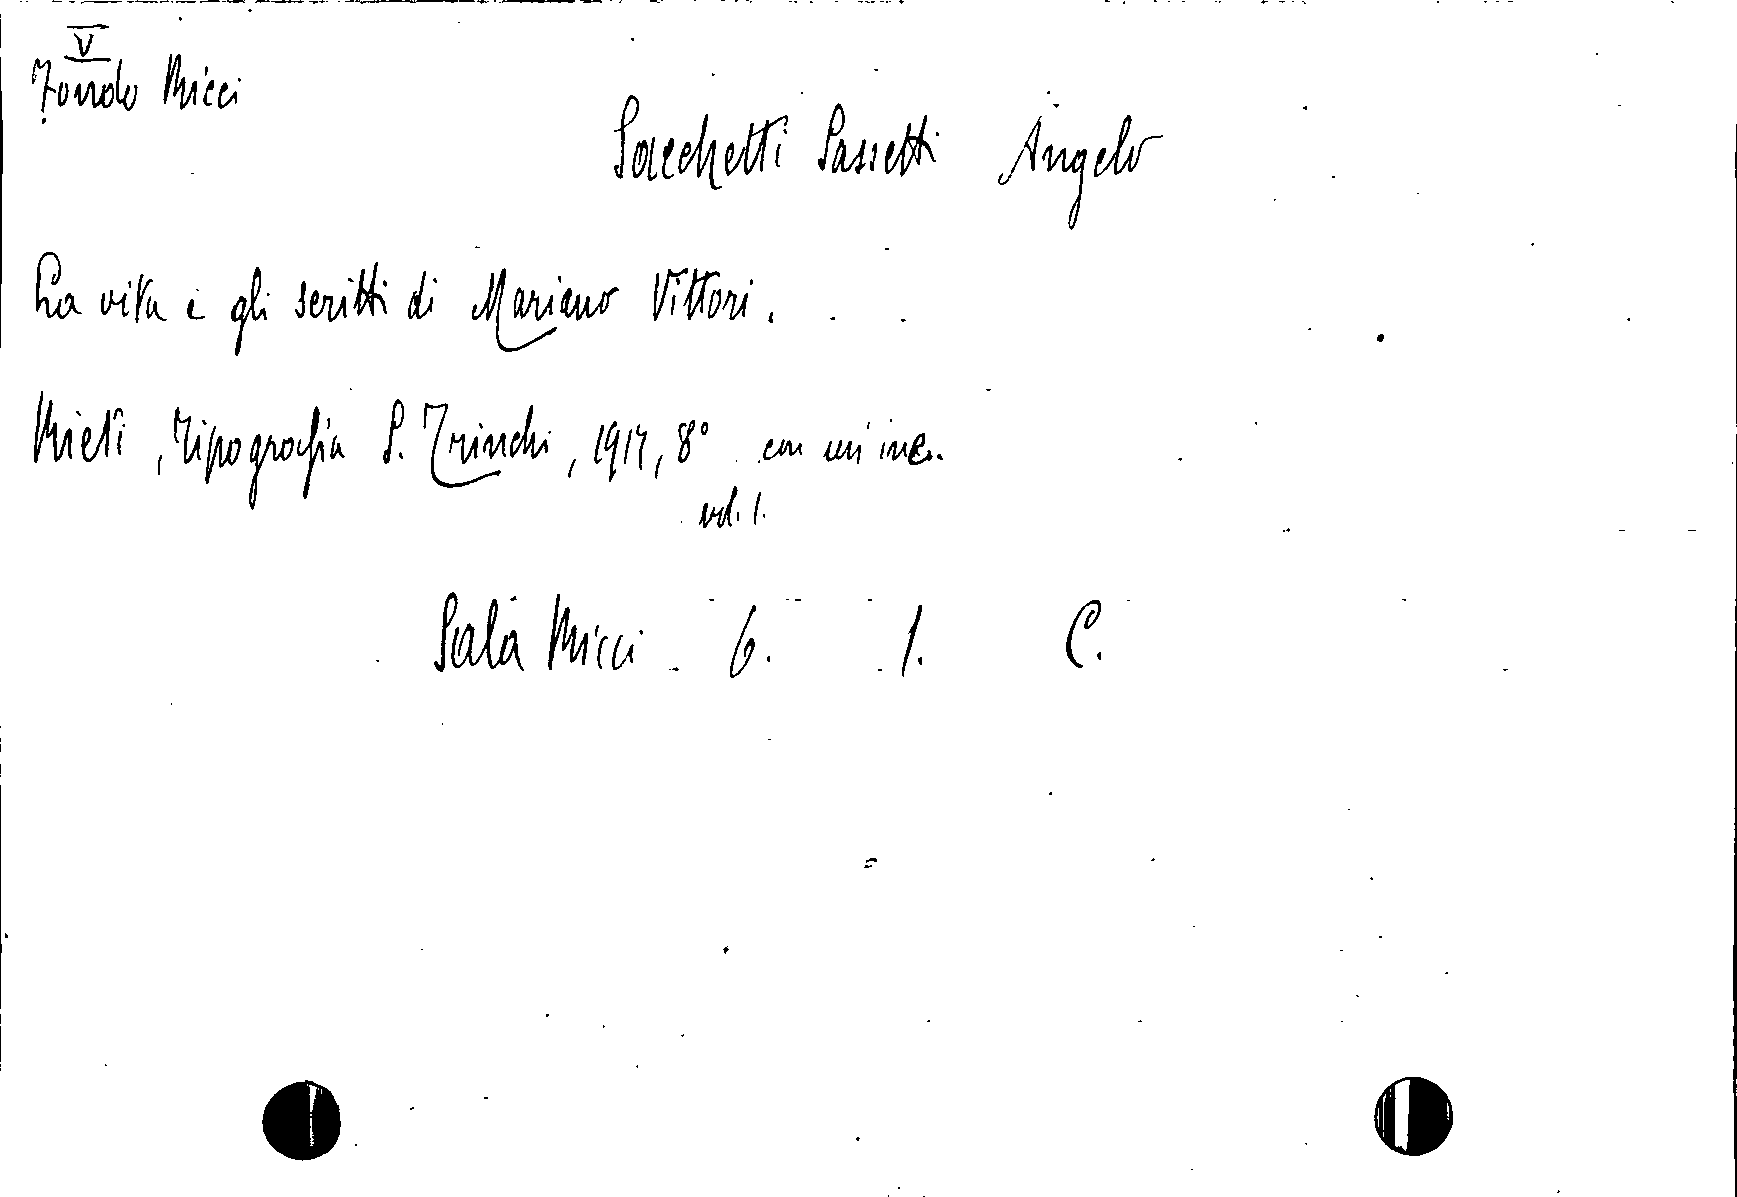 V
Fondo Ricci
Sacchetti Sassetti Angelo
La vita e gli scritti di Mariano Vittori.
Rieti, Tipografia S. Trinchi, 1917, 8° con un'inc.
vol. 1.
Sala Ricci - 6. 1. C.